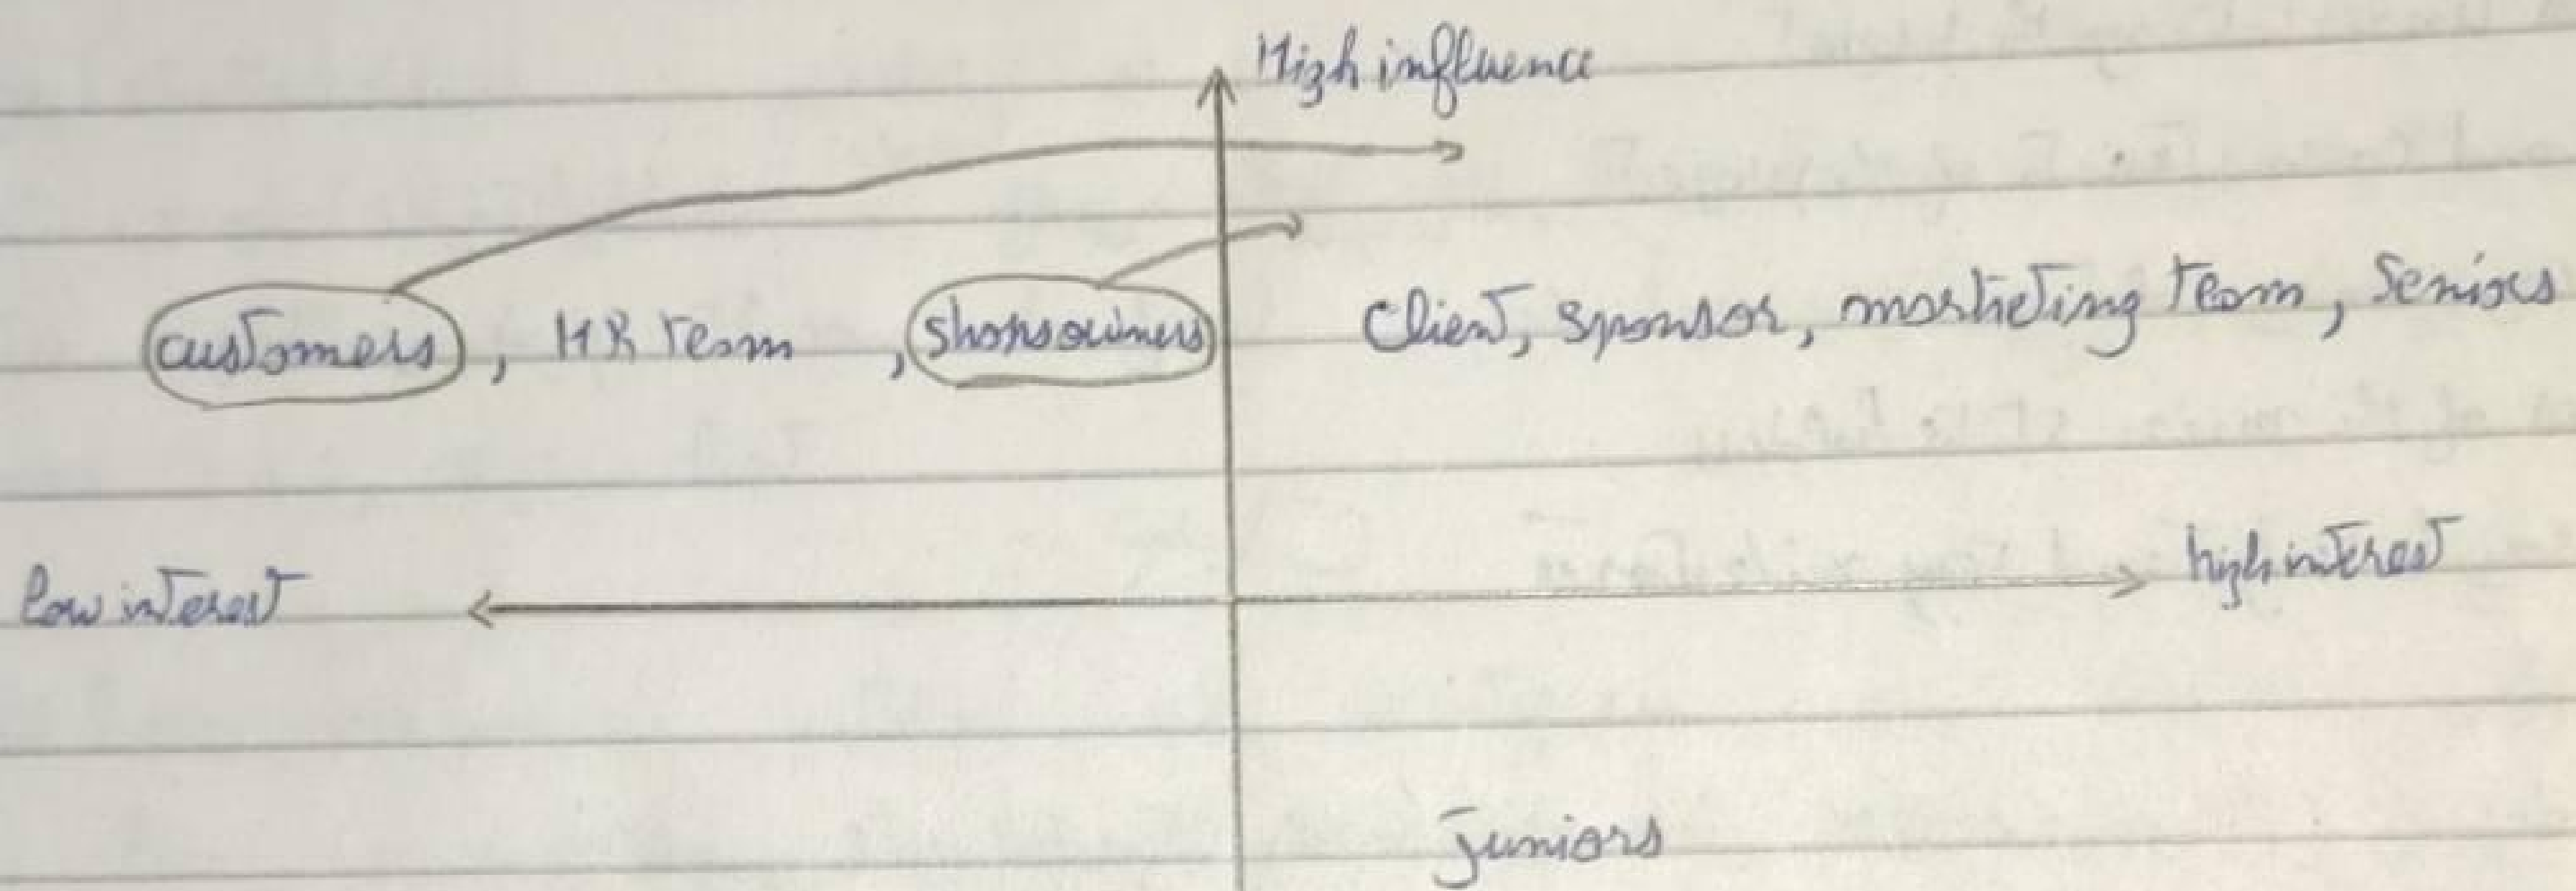 High influence
customers, HR team, shopsowners
Client, sponsor, marketing team, Seniors
low interest
high interest
juniors